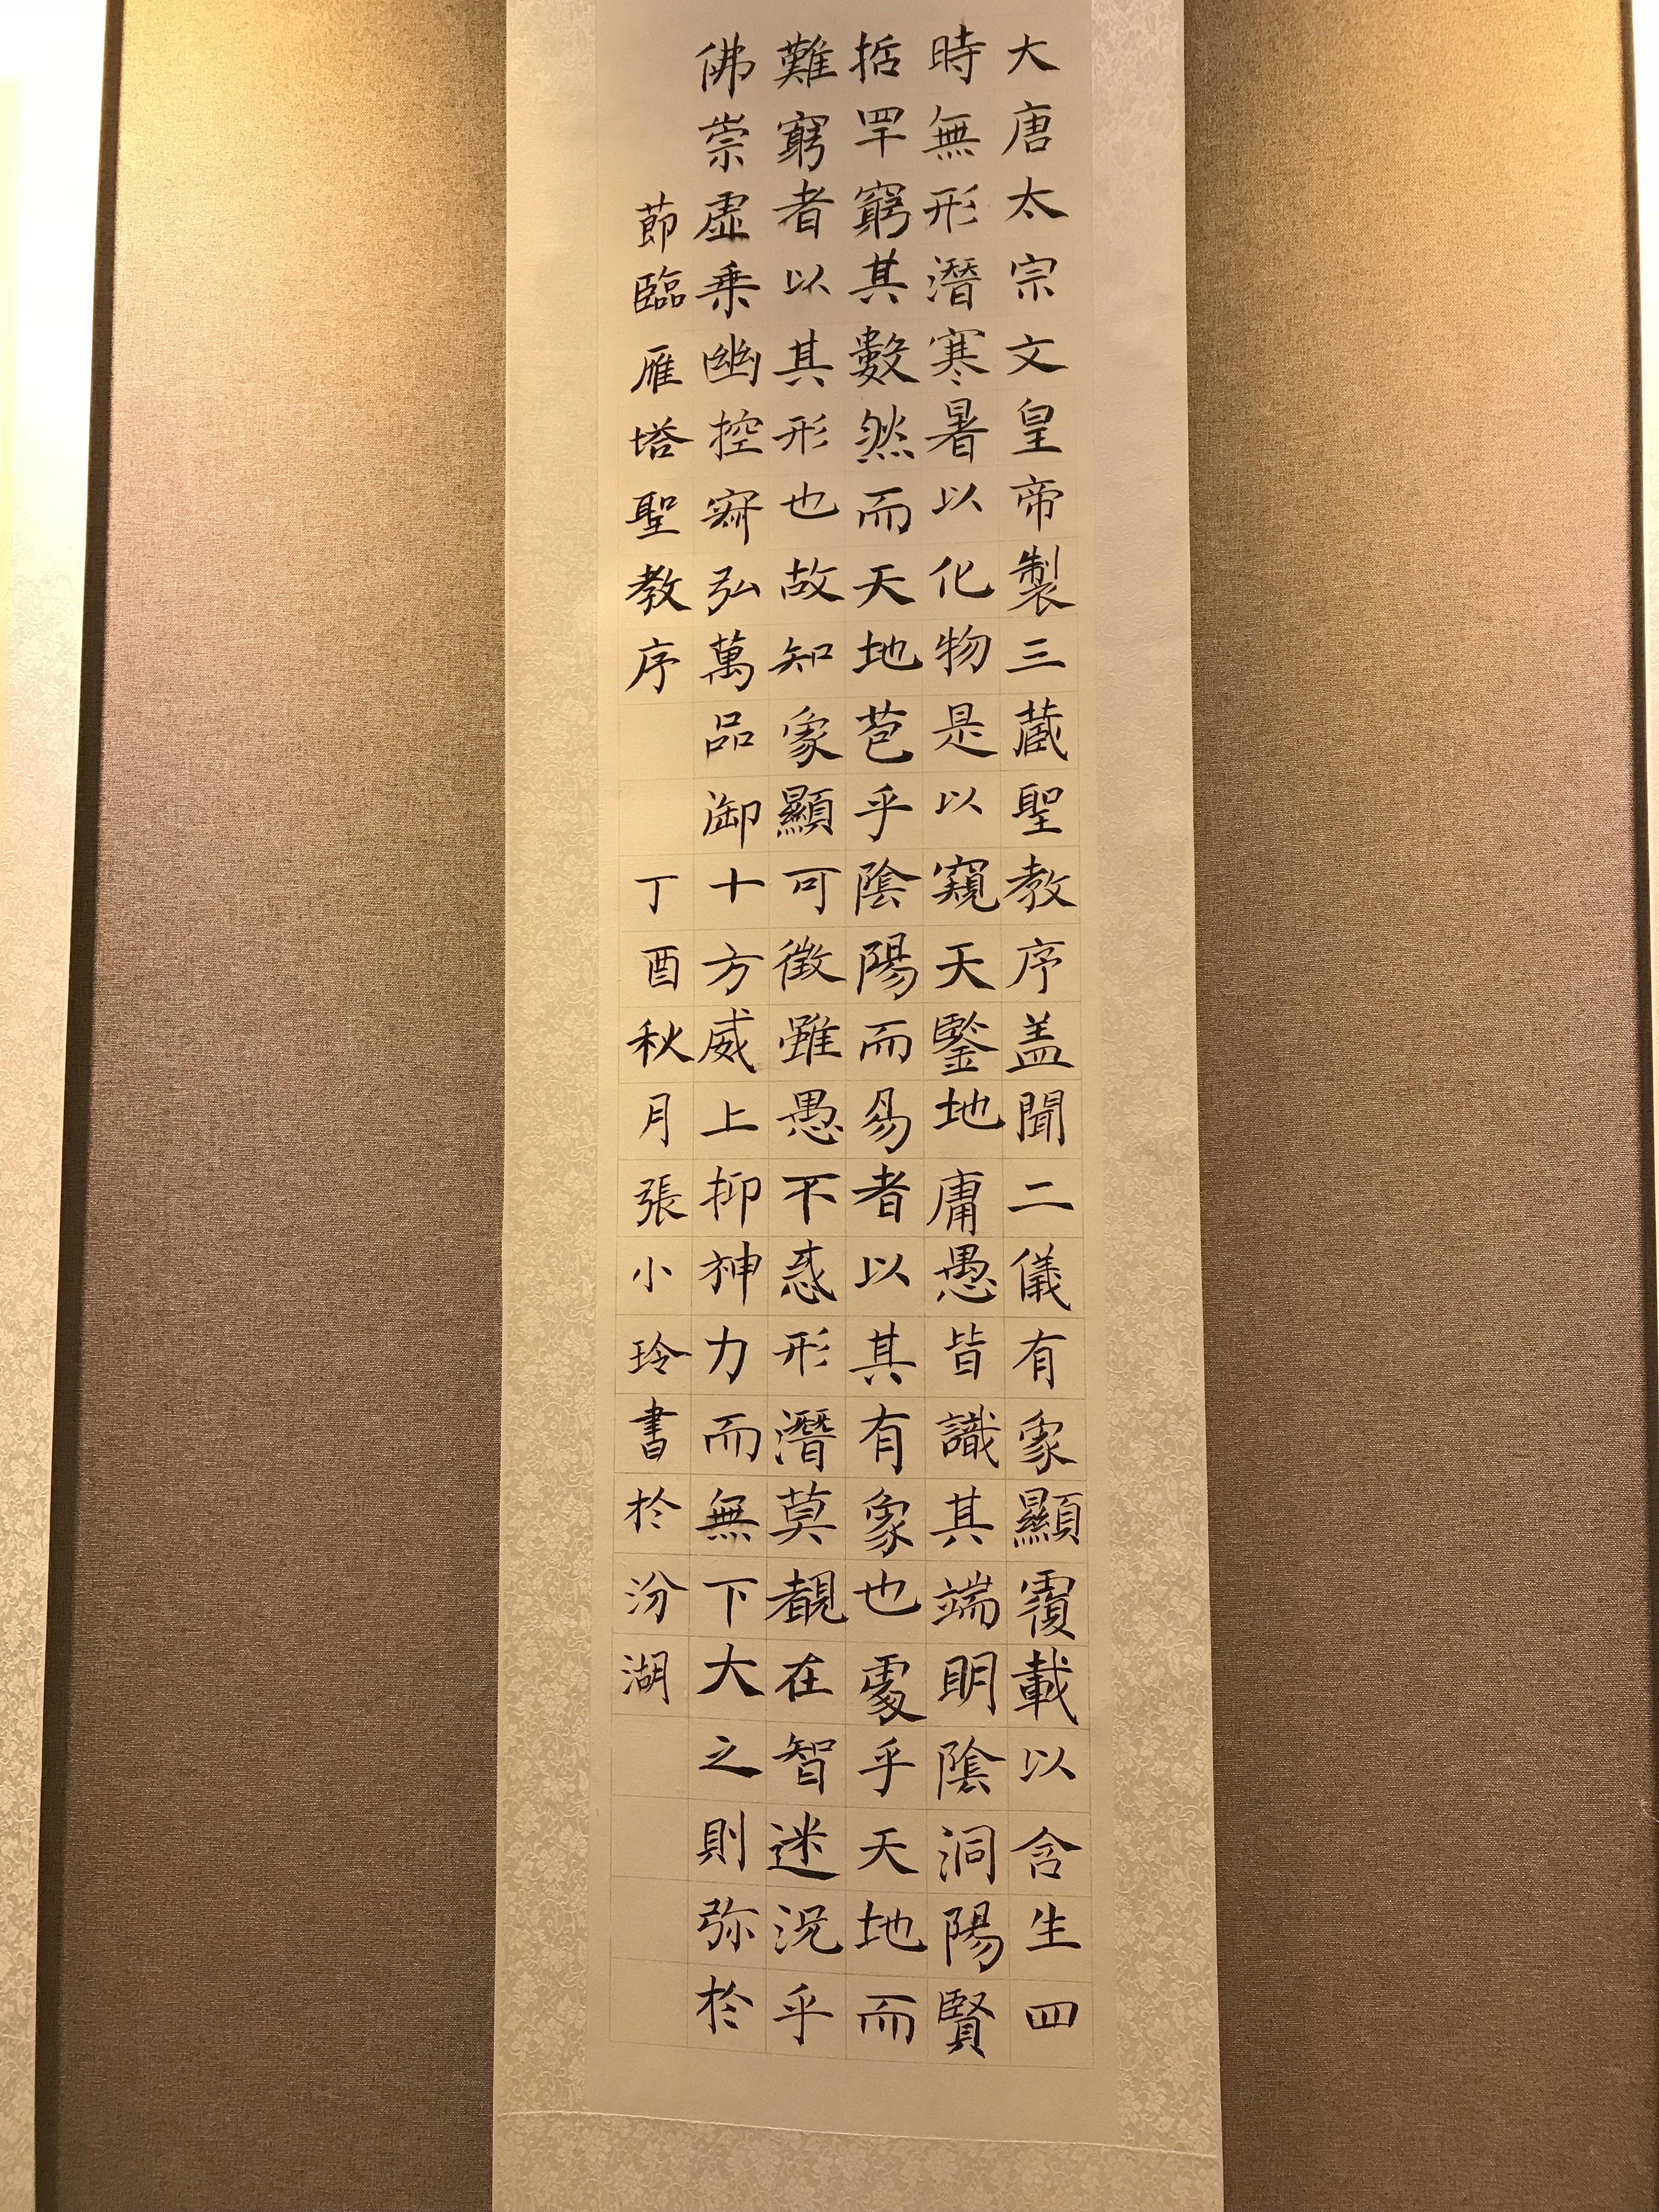 大唐太宗文皇帝製三蔵聖教序盖聞二儀有象顯覆載以含生四
時無形潛寒暑以化物是以窺天鑒地庸愚皆識其端明陰洞陽賢
括罕窮其數然而天地苞乎陰陽而易者以其有象也處乎天地而
難窮者以其形也故知象顯可徵雖愚不惑形潛莫覩在智迷況乎
佛崇虛乗幽控寂弘萬品御十方威上抑神力而無下大之則弥於
節臨雁塔聖教序 丁酉秋月張小玲書於汾湖